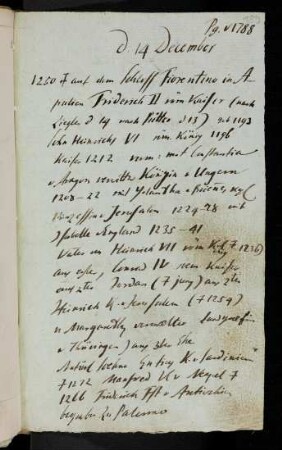 Pg. v 1788
d. 14 December
1250 † auf dem Schloß Fiorentino in A-
pulien Friderich II röm Kaiser (nach
d 14 nach Pütter d 13) geb 1193
Sohn Heinrichs VI röm König 1196
Kaiser 1212 verm: mit Constantia
v Aragon verwittw Königin v Ungern
1208–22 mit Jolantha v
Prinzessin v Jerusalem 1224–28 mit
Isabelle v England 1235–41
Vater von Heinrich VII röm K († 1236)
aus erster, Conrad IV röm Kaiser
aus 2ter († jung) aus 2ter
Heinrich K. v Jerusalem († 1254)
u Margaretha vermälter Landgräfin
v Thüringen) aus 3ter Ehe
Entius K. v Sardinien
† 1272 Manfred K. v Neapel †
1266 Friderich Fst v Antiochien
begraben zu Palermo